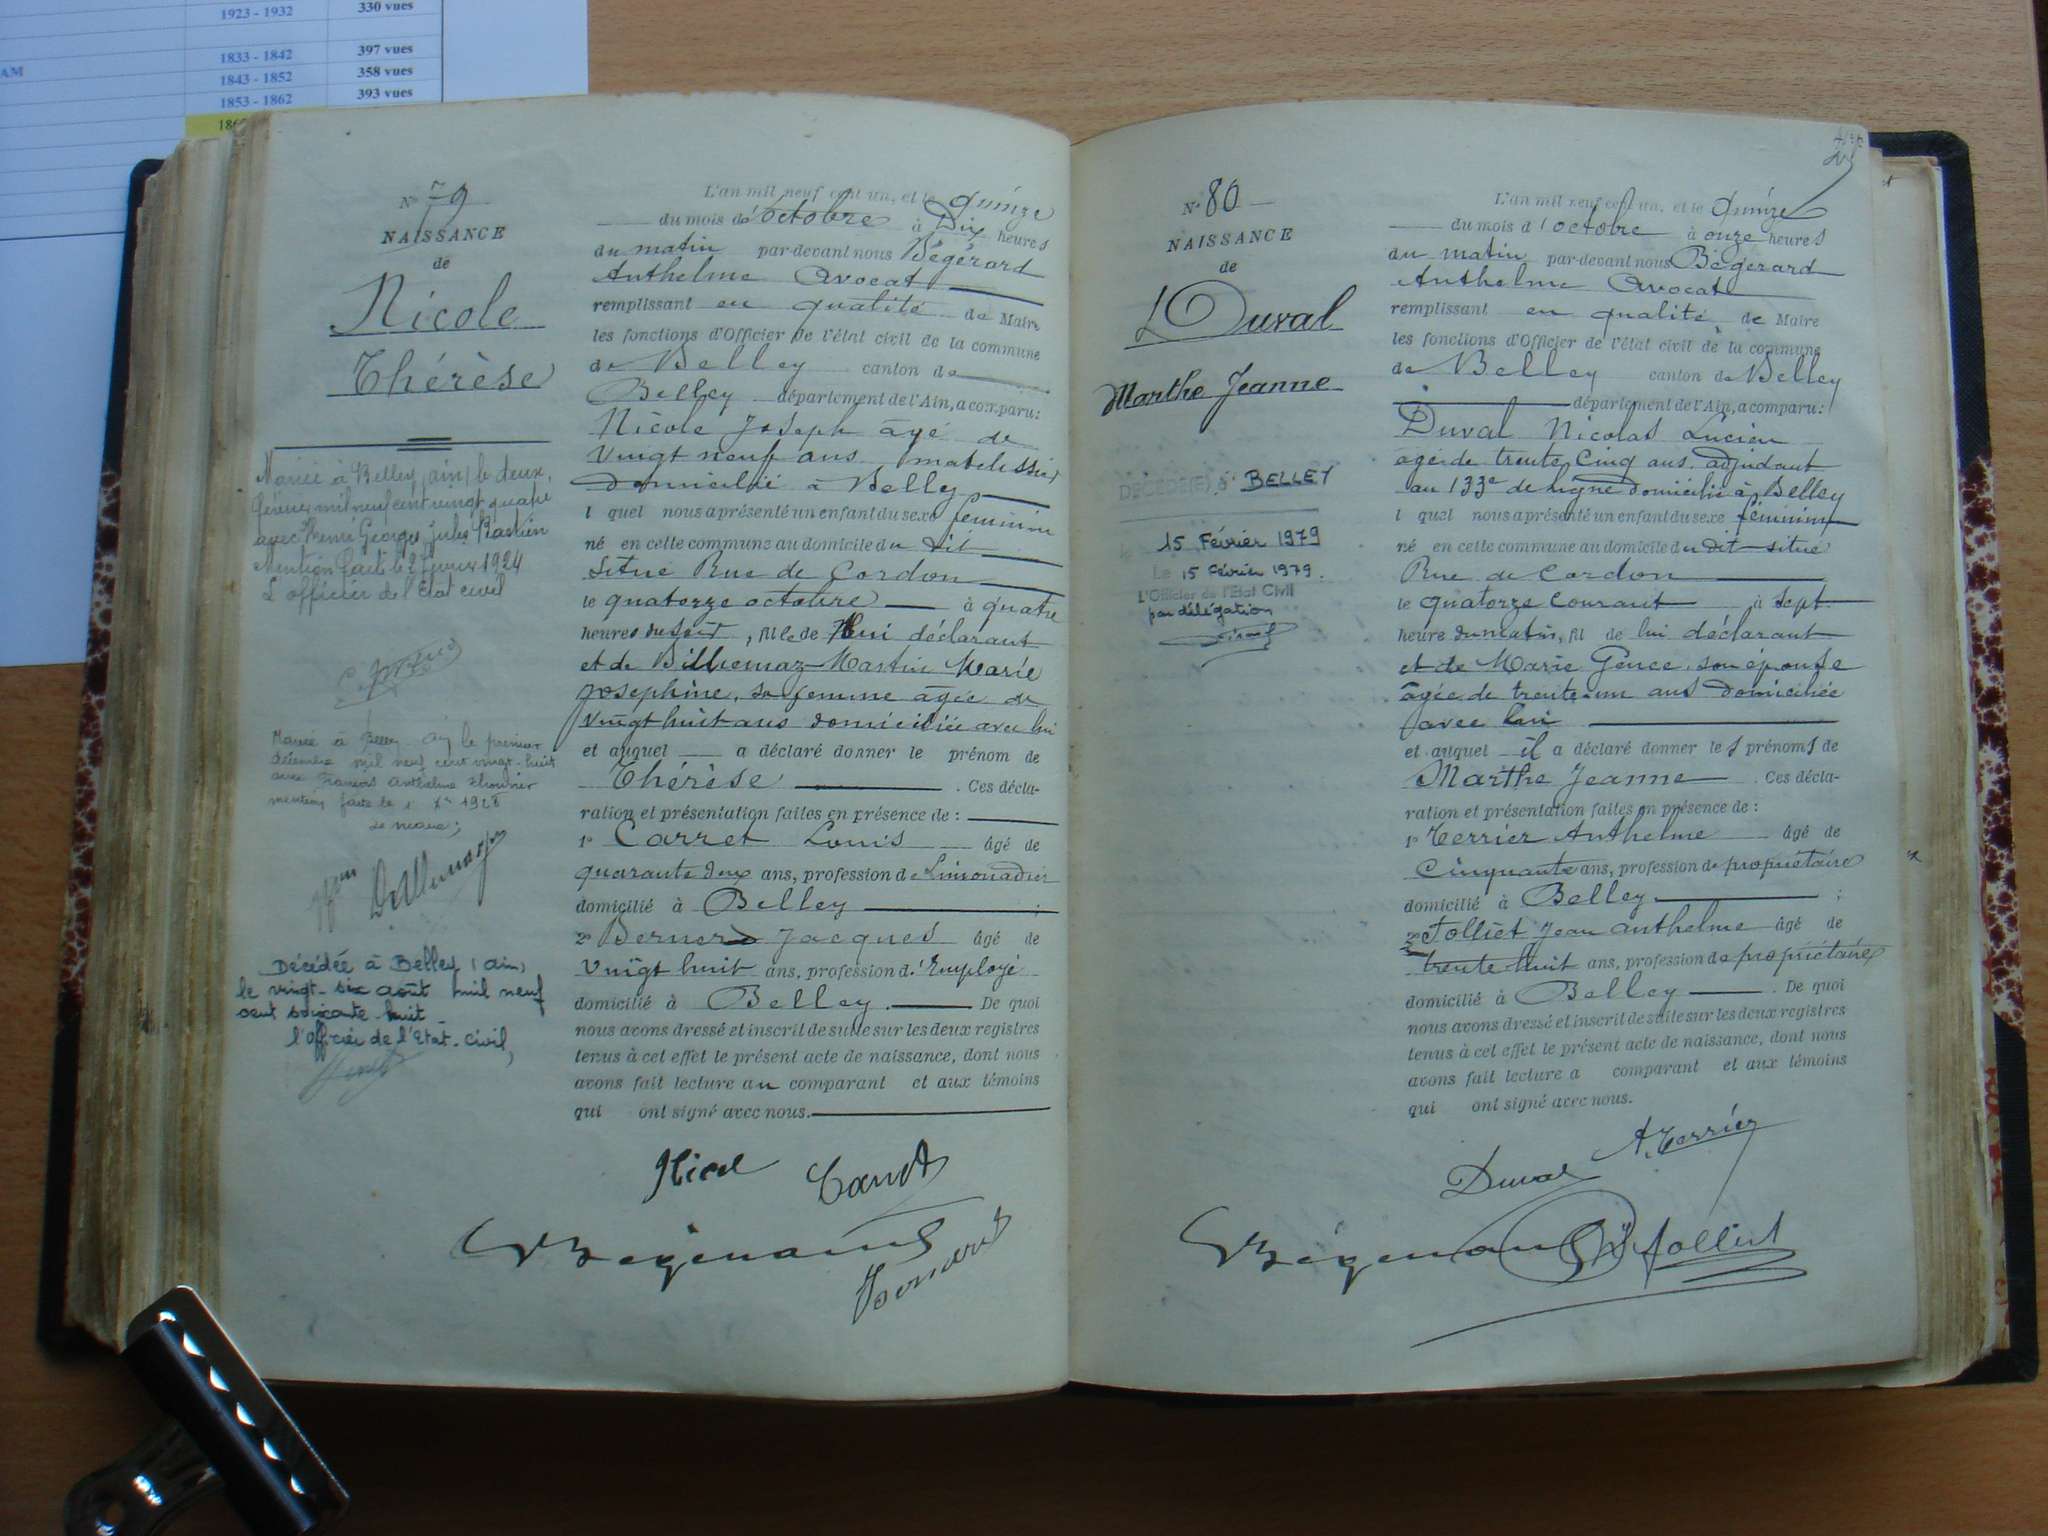 1923 - 1932 330 vues
1833 - 1842 397 vues
AM 1843 - 1852 358 vues
1853 - 1862 393 vues
186
N° 79
NAISSANCE
de
Nicole
Thérèse
Mariée à Belley (ain) le deux
février mil neuf cent vingt quatre
avec René Georges Jules
Mention faite le 2 février 1924
L'officier de l'Etat civil
Mariée à Belley Ain le premier
décembre mil neuf cent vingt-huit
avec François Anthelme
mention faite le 1 Xbre 1928
Le maire;
Décédée à Belley (ain)
le vingt-six août mil neuf
cent soixante huit
l'Officier de l'Etat-civil,
L'an mil neuf cent un, et le quinze
du mois d'octobre à Dix heures
du matin par-devant nous Bégérard
Anthelme avocat
remplissant en qualité de Maire
les fonctions d'Officier de l'état civil de la commune
de Belley canton de
Belley département de l'Ain, a comparu:
Nicole Joseph âgé de
vingt neuf ans matelassier
domicilié à Belley
l quel nous a présenté un enfant du sexe féminin
né en cette commune au domicile du dit
situé Rue de Cordon
le quatorze octobre à quatre
heures du soir, fille de lui déclarant
et de Billiemaz-Martin Marie
Joséphine, sa femme âgée de
vingt huit ans domiciliée avec lui
et auquel a déclaré donner le prénom de
Thérèse . Ces décla-
ration et présentation faites en présence de :
1° Carret Louis âgé de
quarante deux ans, profession de Limonadier
domicilié à Belley ;
2° Bernard Jacques âgé de
vingt huit ans, profession d'Employé
domicilié à Belley. De quoi
nous avons dressé et inscrit de suite sur les deux registres
tenus à cet effet le présent acte de naissance, dont nous
avons fait lecture au comparant et aux témoins
qui ont signé avec nous.
Nicol Carret
Bégérard
Bernard
N° 80
NAISSANCE
de
Duval
Marthe Jeanne
DÉCÉDÉ(E) à BELLEY
le 15 Février 1979
Le 15 février 1979.
L'Officier de l'Etat Civil
par délégation
L'an mil neuf cent un, et le quinze
du mois d'octobre à onze heures
du matin par-devant nous Bégérard
Anthelme avocat
remplissant en qualité de Maire
les fonctions d'Officier de l'état civil de la commune
de Belley canton de Belley
département de l'Ain, a comparu:
Duval Nicolas Lucien
âgé de trente cinq ans, adjudant
au 133e de ligne domicilié à Belley
l quel nous a présenté un enfant du sexe féminin
né en cette commune au domicile du dit situé
Rue de Cordon
le quatorze courant à sept
heure du matin, fil de lui déclarant
et de Marie Gence, son épouse
âgée de trente-un ans domiciliée
avec lui
et auquel il a déclaré donner les prénoms de
Marthe Jeanne . Ces décla-
ration et présentation faites en présence de :
1° Terrier Anthelme âgé de
cinquante ans, profession de propriétaire
domicilié à Belley ;
2° Jolliet Jean Anthelme âgé de
trente huit ans, profession de propriétaire
domicilié à Belley . De quoi
nous avons dressé et inscrit de suite sur les deux registres
tenus à cet effet le présent acte de naissance, dont nous
avons fait lecture a comparant et aux témoins
qui ont signé avec nous.
Duval A. Terrier
Bégérard Jolliet